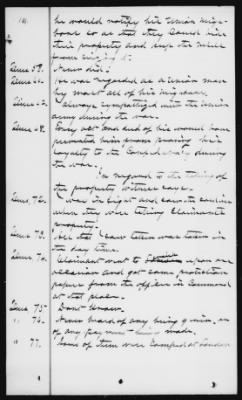 he would notify his Union neigh-
bors so as that they could hide
their property and keep the rebels
from
Ques 58. Never did.
Ques He was regarded as a Union man
by most all of his neighbors.
Ques always sympathized with the Union
army during the war.
Ques 68. would have
prevented him from proving his
loyalty to the Confederacy during
the war.
In regard to the taking of
the property witness says.
Ques. 72. I was in sight and saw the cattle
when they were taking Claimants
property.
Ques. 73. All that I saw taken was taken in
the day time.
Ques. 74. Claimant went to upon one
occasion and got some protection
papers from the officer in Command
at that place.
Ques. 75. Dont Know.
" 76. Never heard of any being given, or
of any payment being made.
" 77. Some of them were Camped at London